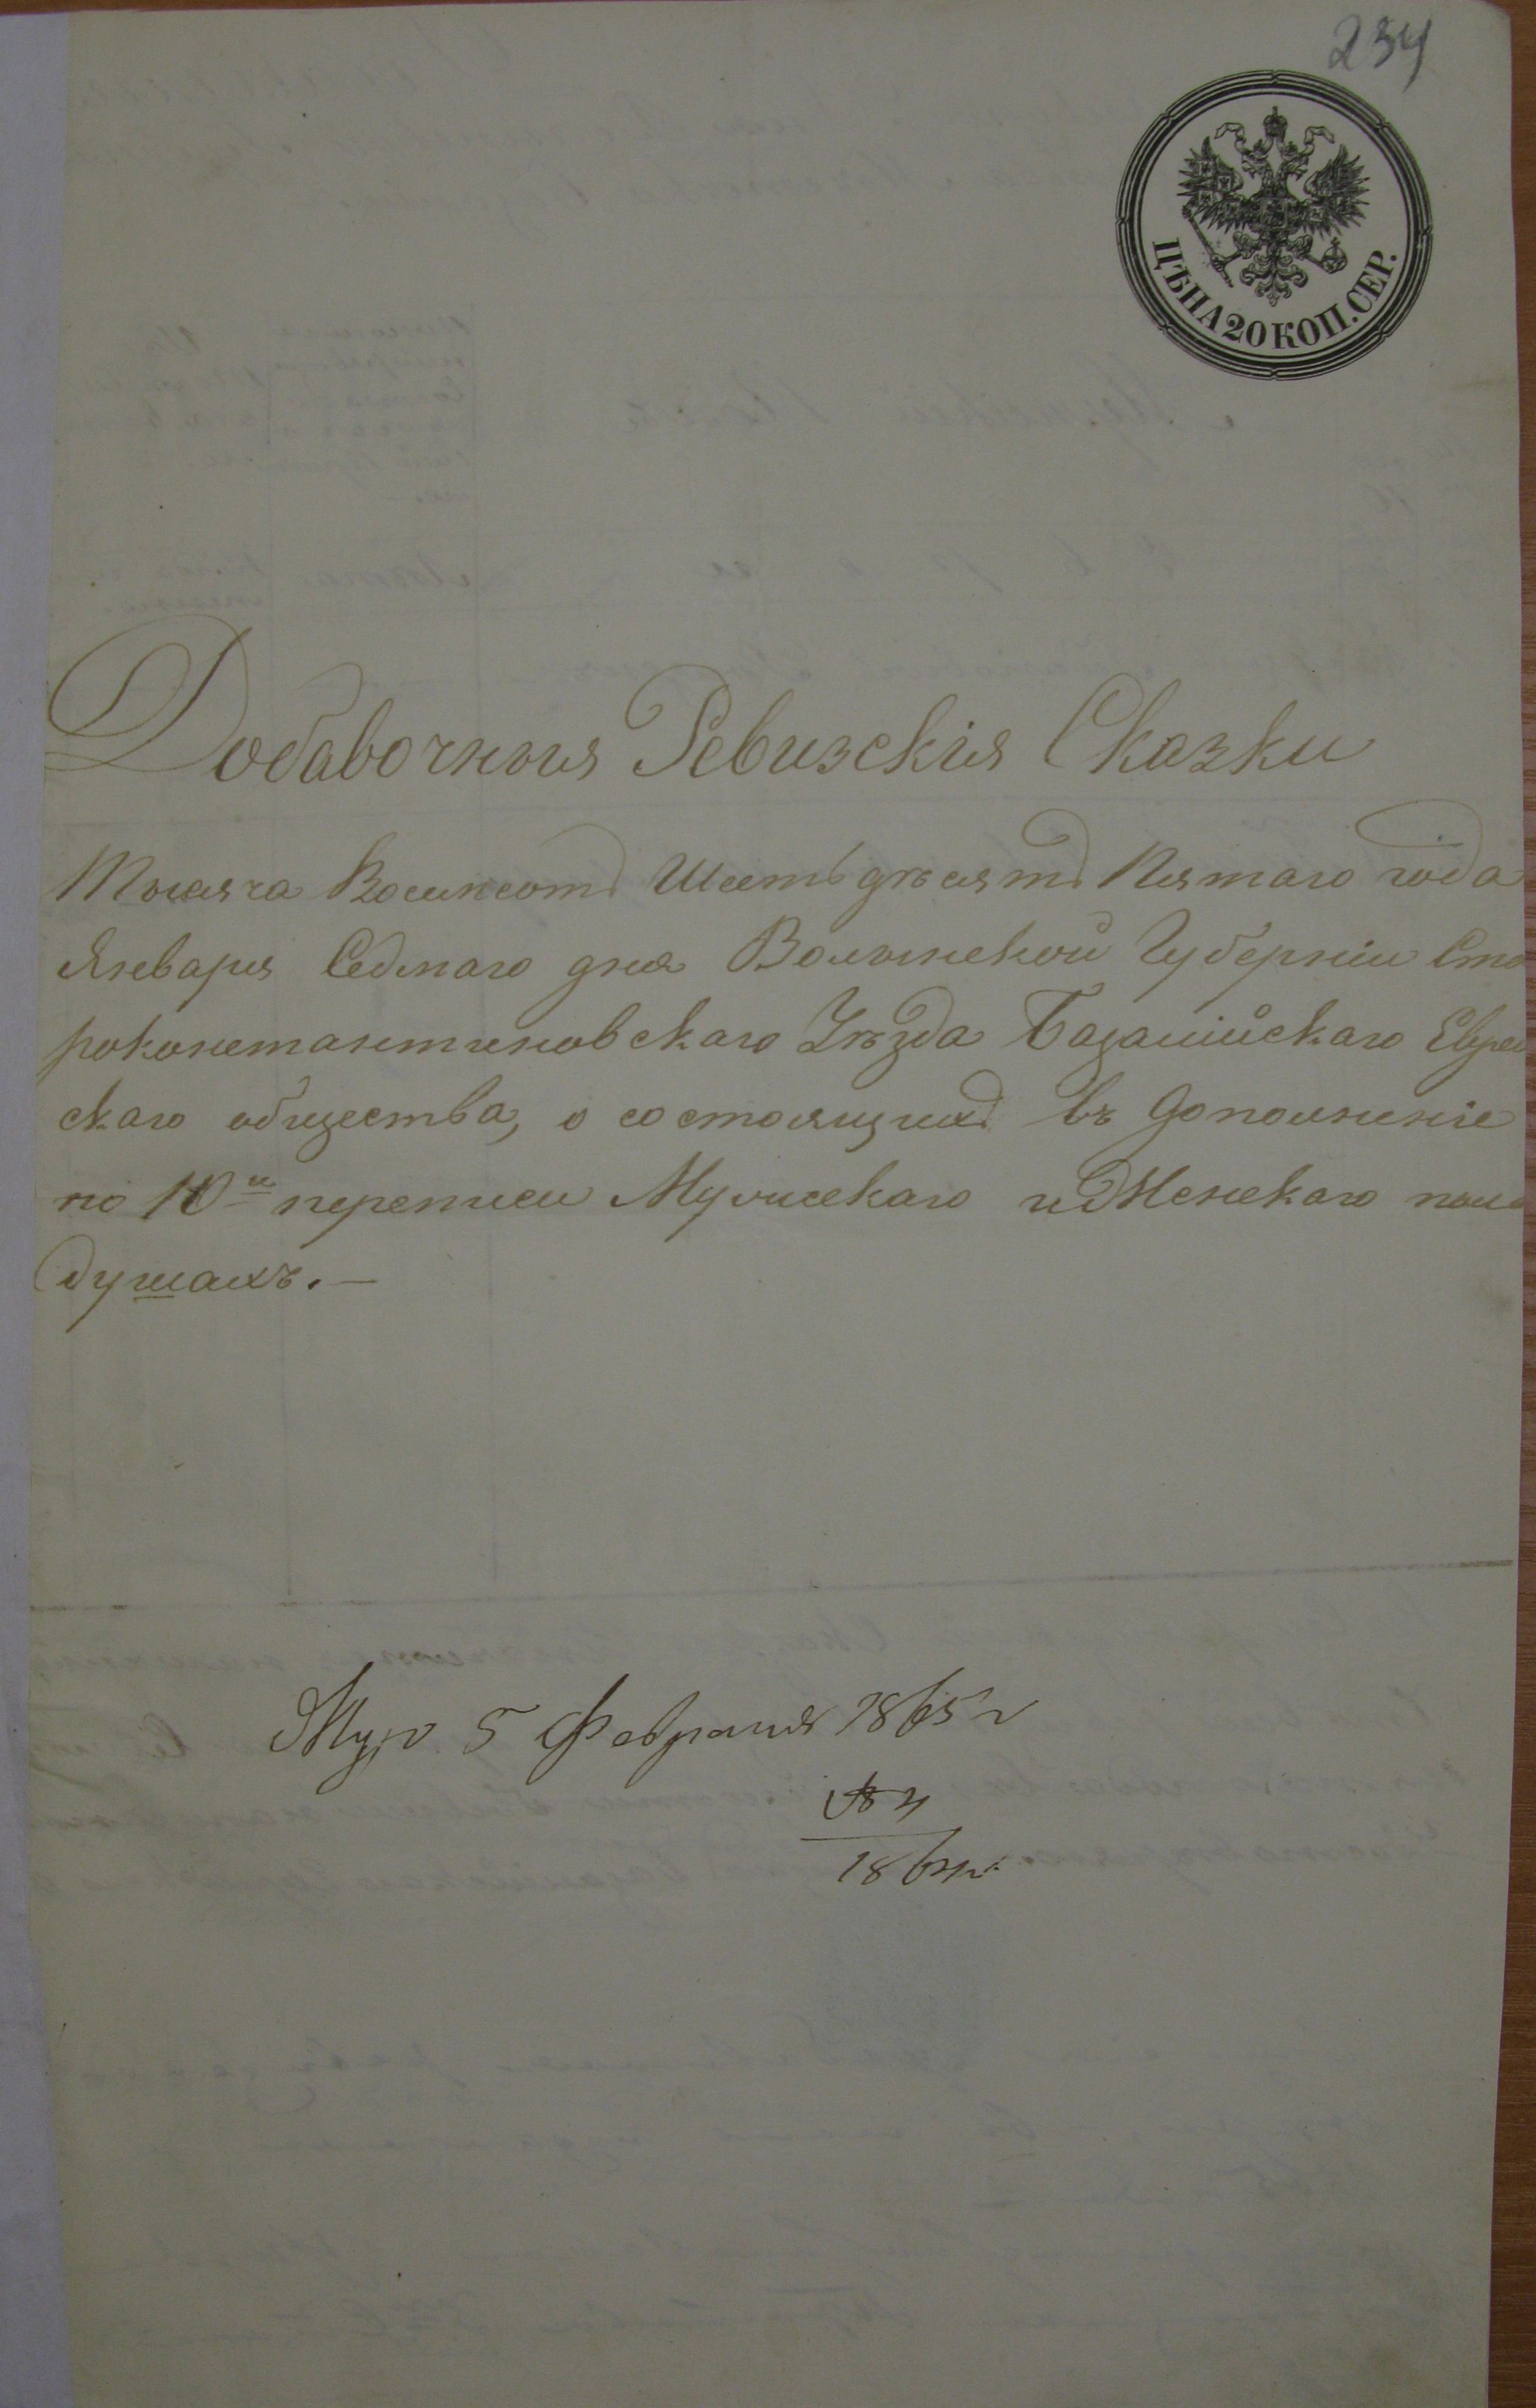 234
ЦѢНА 20 КОП. СЕР.
Добавочныя Ревизскія Сказки
Тысяча Восимсотъ Шестьдѣсятъ Пятаго года
Января Седмаго дня Волынской Губерніи Ста
роконстантиновскаго Уѣзда Базалійскаго Еврей
скаго общества, о состоящихъ въ дополненіе
по 10й переписи Мужескаго и Женскаго пола
душахъ.—
5 Февраля 1865 г
№ 4